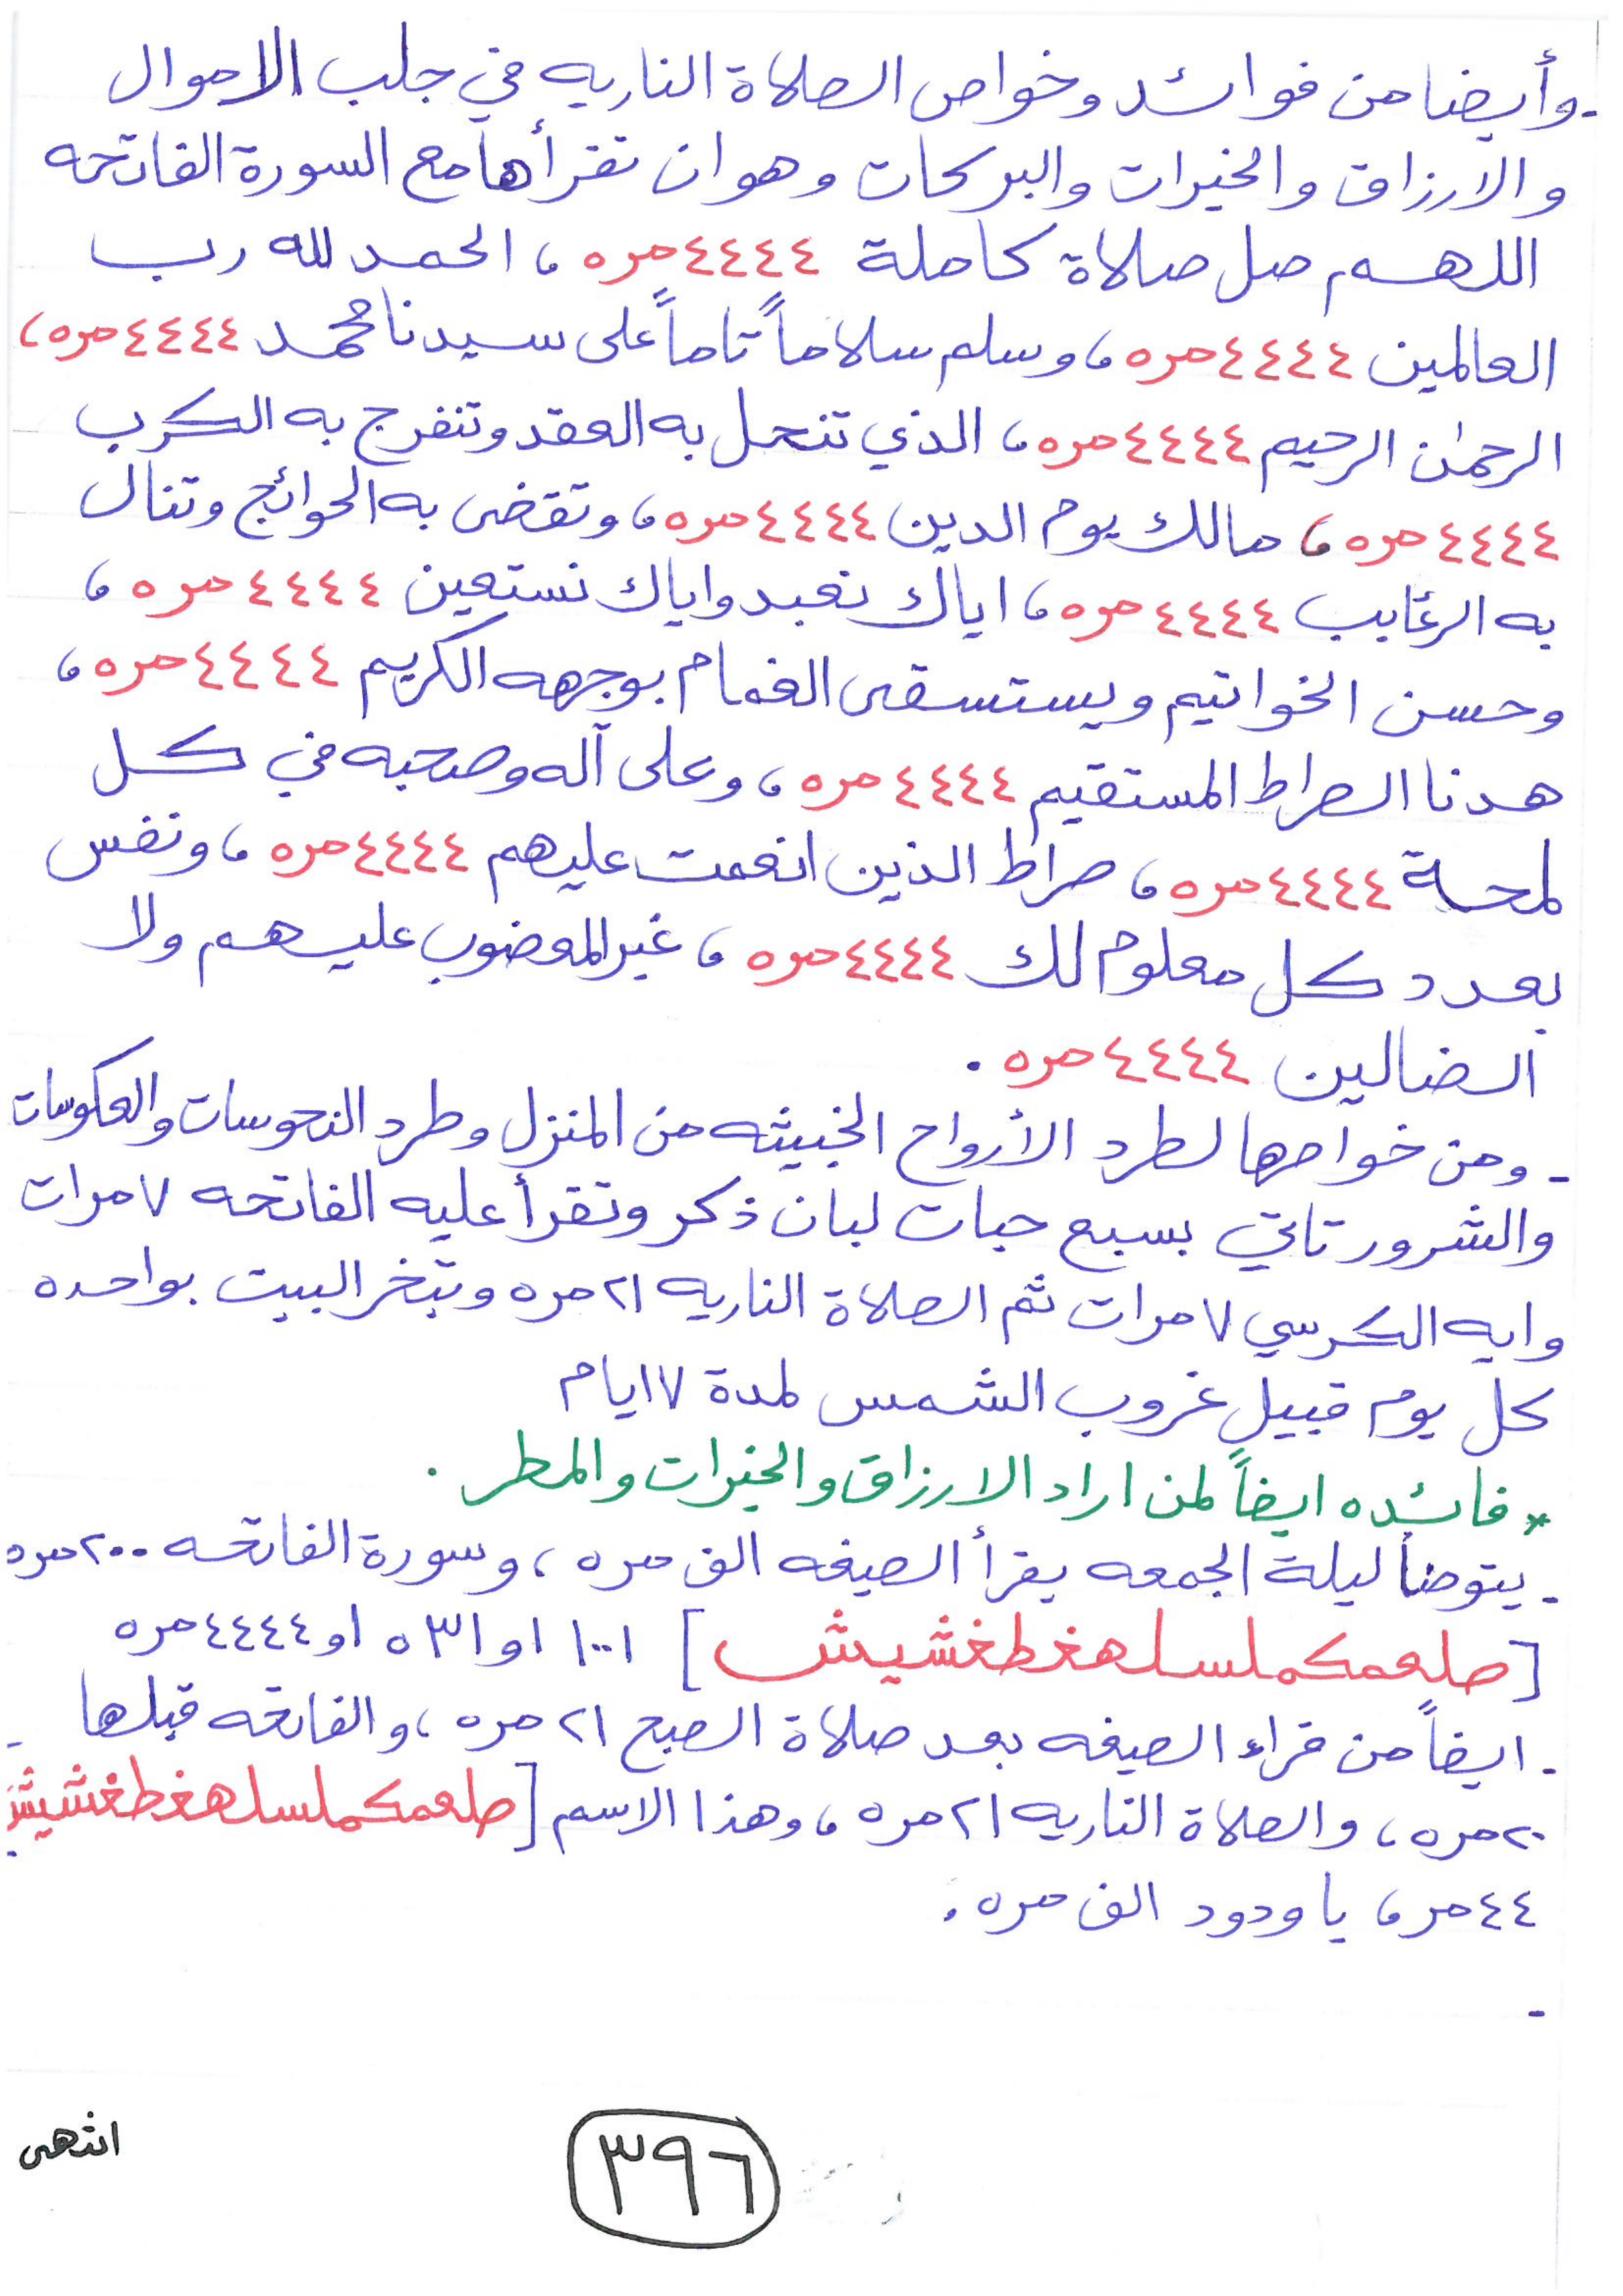 - وأيضا من فوائد وخواص الصلاة الناريه في جلب الاموال
و الارزاق والخيرات والبركات وهو ان تقرأها مع السورة الفاتحه
اللهم صل صلاة كاملة ٤٤٤٤ مره ، الحمد لله رب
العالمين ٤٤٤٤ مره ، وسلم سلاماً تاماً على سيدنا محمد ٤٤٤٤ مره ،
الرحمٰن الرحيم ٤٤٤٤ مره ، الذي تنحل به العقد وتنفرج به الكرب
٤٤٤٤ مره ، مالك يوم الدين ٤٤٤٤ مره ، وتقضى به الحوائج وتنال
به الرغايب ٤٤٤٤ مره ، اياك نعبد واياك نستعين ٤٤٤٤ مره ،
وحسن الخواتيم ويستسقى الغمام بوجهه الكريم ٤٤٤٤ مره ،
هدنا الصراط المستقيم ٤٤٤٤ مره ، وعلى آله وصحبه في كل
لمحة ٤٤٤٤ مره ، صراط الذين انعمت عليهم ٤٤٤٤ مره ، ونفس
بعدد كل معلوم لك ٤٤٤٤ مره ، غير المغضوب عليهم ولا
الضالين ٤٤٤٤ مره .
- ومن خواصها لطرد الأرواح الخبيثه من المنزل وطرد النحوسات والعكوسات
والشرور تاتي بسبع حبات لبان ذكر وتقرأ عليه الفاتحه ٧ مرات
وايه الكرسي ٧ مرات ثم الصلاة الناريه ٢١ مره وتبخر البيت بواحده
كل يوم قبيل غروب الشمس لمدة ١٧ ايام
* فائده ايضاً لمن اراد الارزاق والخيرات والمطر .
- يتوضأ ليلة الجمعه يقرأ الصيغه الف مره ، وسورة الفاتحه ٢٠٠ مره
[ صلعمكملسلهغطغشيش ] ١٠٠١ او ٥٣١ او ٤٤٤٤ مره
- ايضاً من قراء الصيغه بعد صلاة الصبح ٢١ مره ، والفاتحه قبلها -
٢٠ مره ، والصلاة الناريه ٢١ مره ، وهذا الاسم [ صلعمكملسلهغطغشيش
٤٤ مر ، يا ودود الف مره .
-
٣٩٦
انتهى